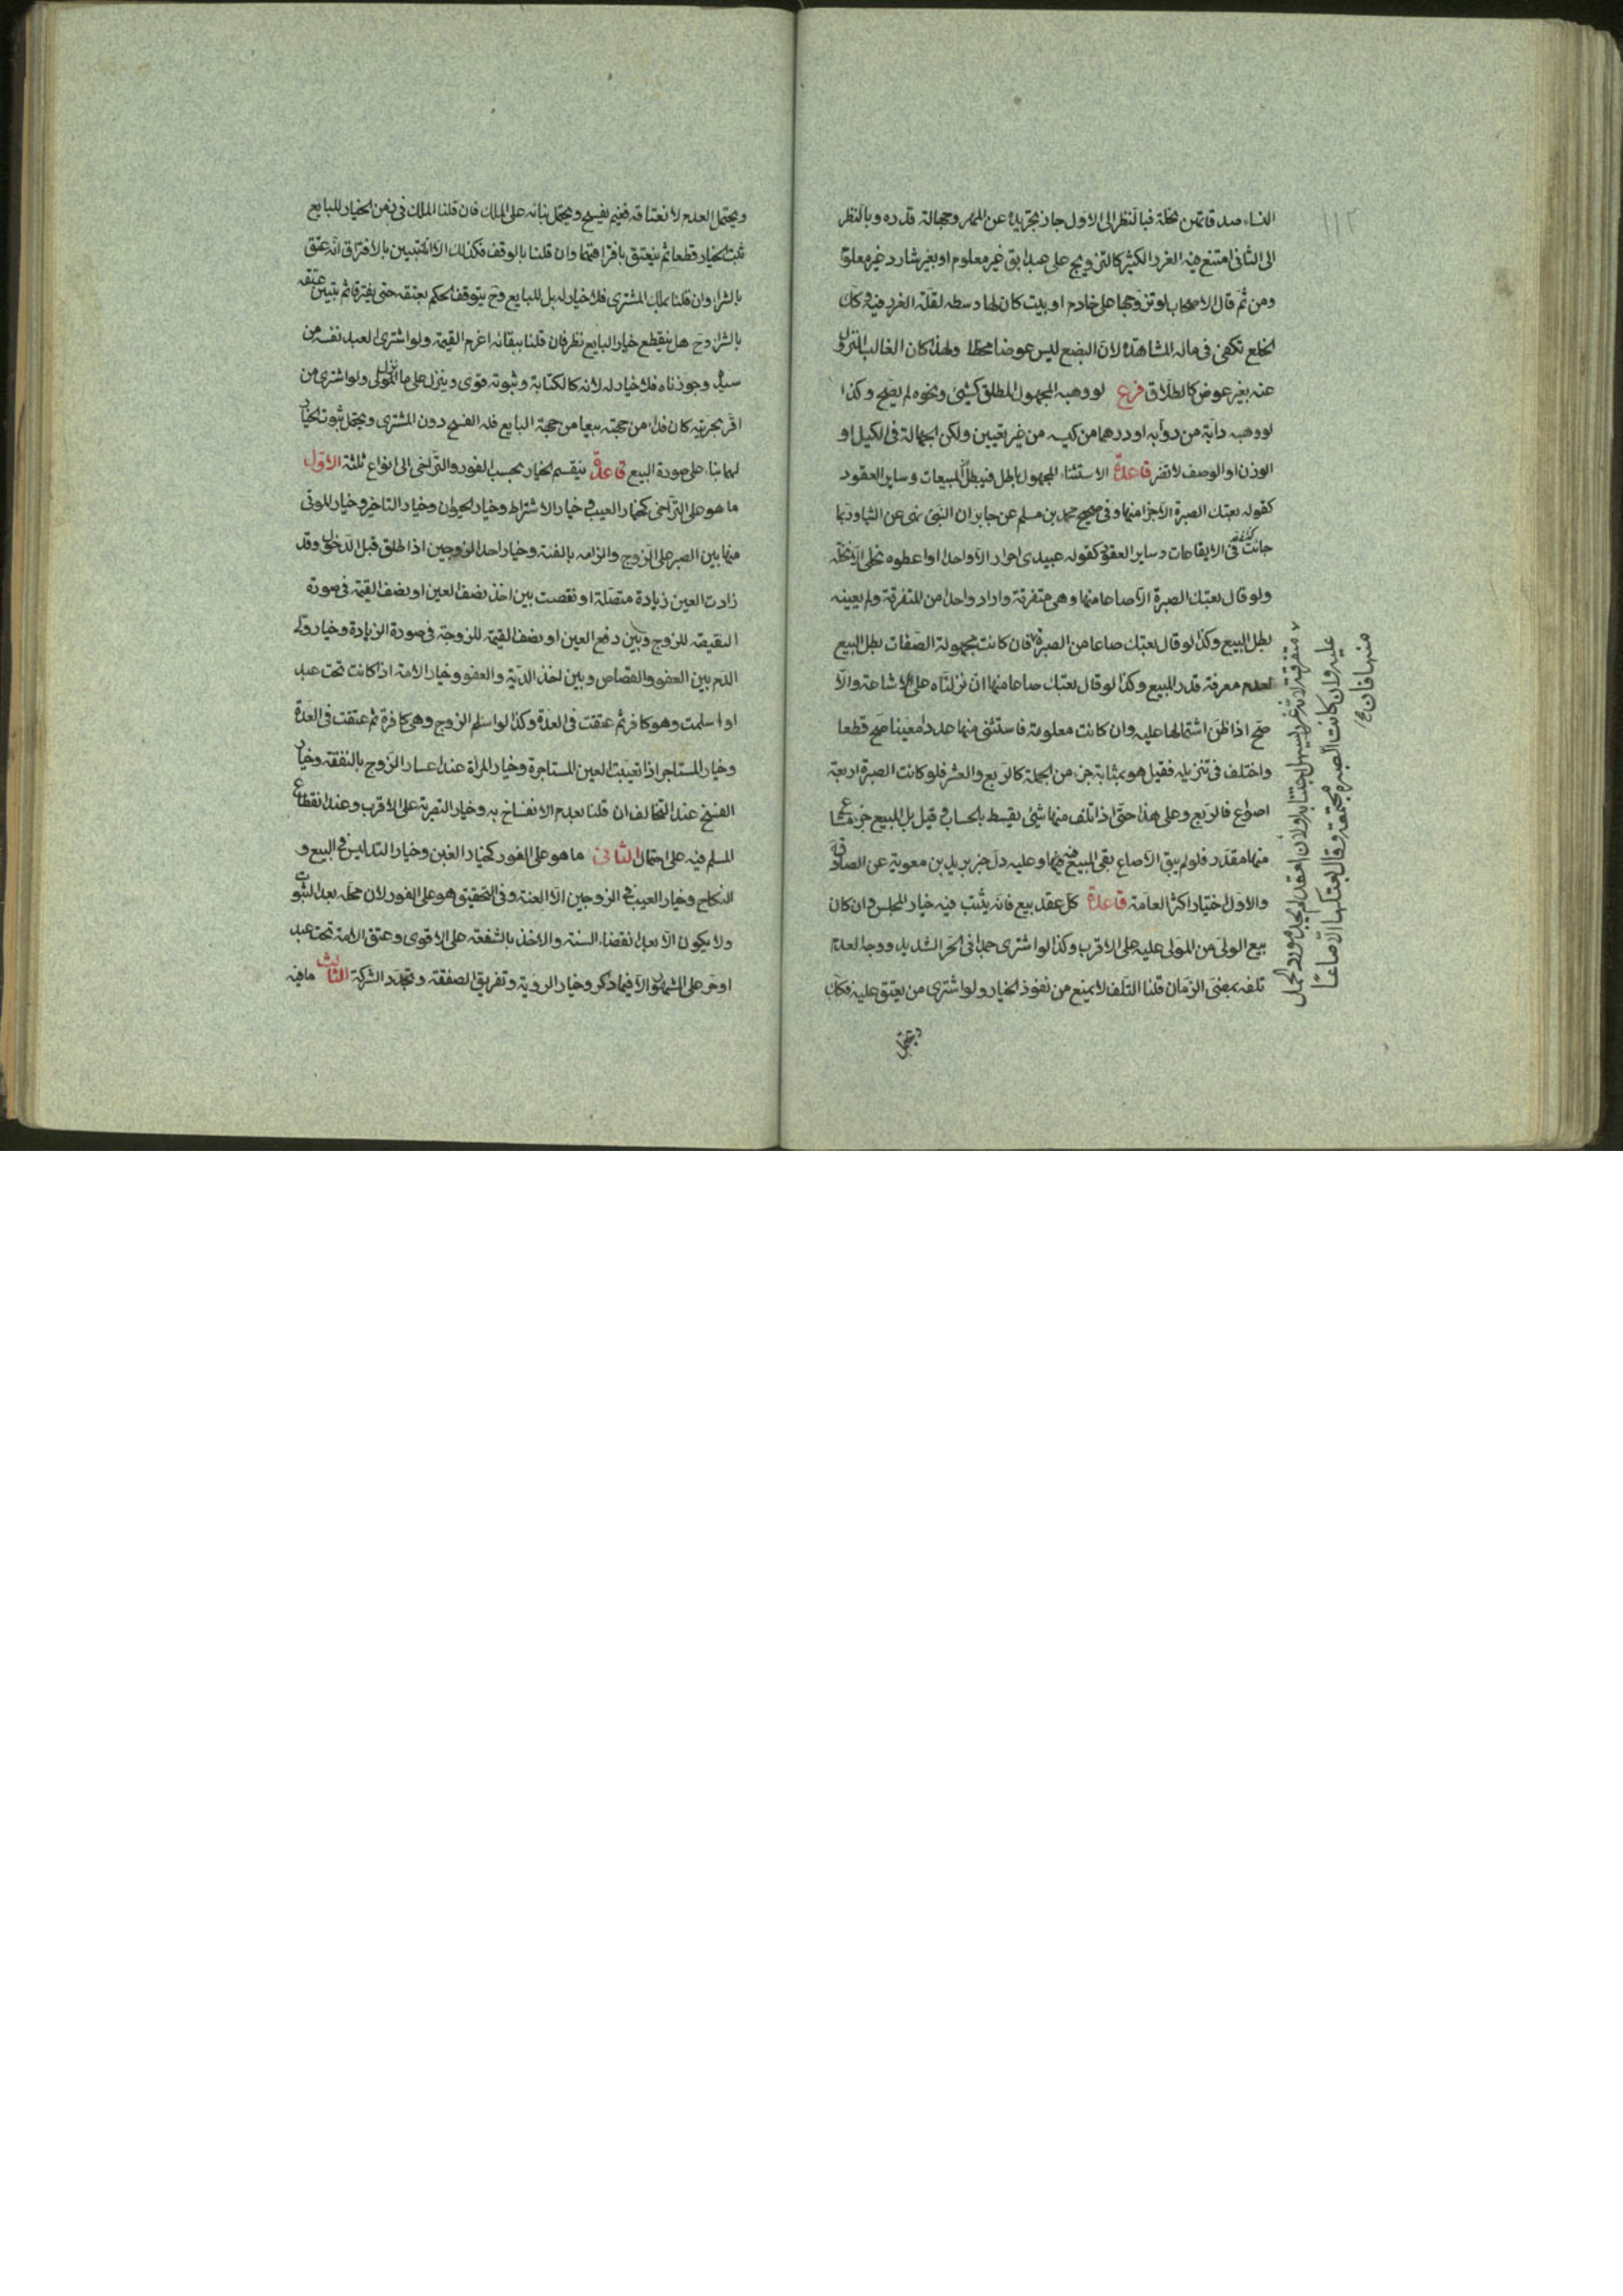 النساء صدقاتهن نحلة فبالنظر الى الاول جاز تجريده عن المهر وجهالة قدره وبالنظر
الى الثانى امتنع فيه الغرر الكثير كالتزويج على عبد ابق غير معلوم او بعير شارد غير معلوم
ومن ثم قال الاصحاب لو تزوجها على خادم او بيت كان لها وسطه لقلة الغرر فيه وكان
الخلع تكفى فى ماله المشاهدة لان البضع ليس عوضا محضا ولهذا كان الغالب النزول
عنه بغير عوض كالطلاق فرع لو وهبه المجهول المطلق كشئ ونحوه لم يصح وكذا
لو وهبه دابة من دوابه او درهما من كيسه من غير تعيين ولكن الجهالة فى الكيل او
الوزن او الوصف لا تضر قاعدة الاستثناء المجهول باطل فيبطل المبيعات وساير العقود
كقوله بعتك الصبرة الا جزا منها وفى صحيح محمد بن مسلم عن جابر ان النبى نهى عن الثنيا وربما
جائت فى الايقاعات وساير العقود كقوله عبيدى احرار الا واحدا او اعطوه نخلى الا نخلة
ولو قال بعتك الصبرة الا صاعا منها وهى متفرقة واراد واحدا من المتفرقة ولم يعينه
بطل البيع وكذا لو قال بعتك صاعا من الصبرة فان كانت مجهولة الصفات بطل البيع
لعدم معرفة قدر المبيع وكذا لو قال بعتك صاعا منها ان نزلناه على الاشاعة والا
صح اذا ظن اشتمالها عليه وان كانت معلومة فاستثنى منها عددا معينا صح قطعا
واختلف فى تنزيله فقيل هو بمثابة جزء من الجملة كالربع والعشر فلو كانت الصبرة اربعة
اصوع فالربع وعلى هذا حتى اذا تلف منها شئ يقسط بالحساب وقيل بل المبيع جزء مشاع
منها مقدر فلو لم يبق الا صاع بقى المبيع فيه وعليه دل خبر بريد بن معوية عن الصادق
والاول اختيار اكثر العامة قاعدة كل عقد بيع فانه يثبت فيه خيار المجلس وان كان
بيع الولى من المولى عليه على الاقرب وكذا لو اشترى جمدا فى الحر الشديد ووجه العدم
تلفه بمضى الزمان قلنا التلف لا يمنع من نفوذ الخيار ولو اشترى من يعتق عليه فكك
متفرقة لانه غرر يسهل اجتنابه ولان العقد لم يجد موردا يحمل
عليه وان كانت الصبرة مجتمعة وقال بعتكها الا صاعا
منها فان
ويحتمل
ويحتمل العدم لانعتاقه فيم يفسخ ويحتمل بنائه على الملك فان قلنا الملك فى زمن الخيار للبايع
ثبت الخيار قطعا ثم ينعتق بافتراقهما وان قلنا بالوقف فكذلك الا انا نتبين بالافتراق انه عتق
بالشراء وان قلنا بملك المشترى فلا خيار له بل للبايع وح يتوقف الحكم بعتقه حتى يفترقا ثم يتبين عتقه
بالشراء وح هل ينقطع خيار البايع نظر فان قلنا ببقائه اغرم القيمة ولو اشترى العبد نفسه من
سيده وجوزناه فلا خيار له لانه كالكتابة وثبوته قوى وينزل على ما ولو اشترى من
اقر بحريته كان فداء من جهته بيعا من جهة البايع فله الفسخ دون المشترى ويحتمل ثبوت الخيار
لهما بناء على صورة البيع قاعدة ينقسم الخيار بحسب الفور والتراخى الى انواع ثلثة الاول
ما هو على التراخى كخيار العيب وخيار الاشتراط وخيار الحيوان وخيار التاخير وخيار المولى
منها بين الصبر على الزوج والزامه بالفئة وخيار احد الزوجين اذا طلق قبل الدخول وقد
زادت العين زيادة متصلة او نقصت بين اخذ نصف العين او نصف القيمة فى صورة
النقيصة للزوج وبين دفع العين او نصف القيمة للزوجة فى صورة الزيادة وخيار ولى
الدم بين العفو والقصاص وبين اخذ الدية والعفو وخيار الامة اذا كانت تحت عبد
او اسلمت وهو كافر ثم عتقت فى العدة وكذا لو اسلم الزوج وهى كافرة ثم عتقت فى العدة
وخيار المستاجر اذا تعيبت العين المستاجرة وخيار المراة عند اعسار الزوج بالنفقة وخيار
الفسخ عند التحالف ان قلنا بعدم الانفساخ به وخيار التصرية على الاقرب وعند انقطاع
المسلم فيه على احتمال الثانى ما هو على الفور كخيار الغبن وخيار التدليس فى البيع و
النكاح وخيار العيب فى الزوجين الا العنة وفى التحقيق هو على الفور لان محله بعد الثبوت
ولا يكون الا بعد انقضاء السنة والاخذ بالشفعة على الاقوى وعتق الامة تحت عبد
او حر على المشهور الا فيما ذكر وخيار الروية وتفريق الصفقة وتجدد الشركة الثالث ما فيه